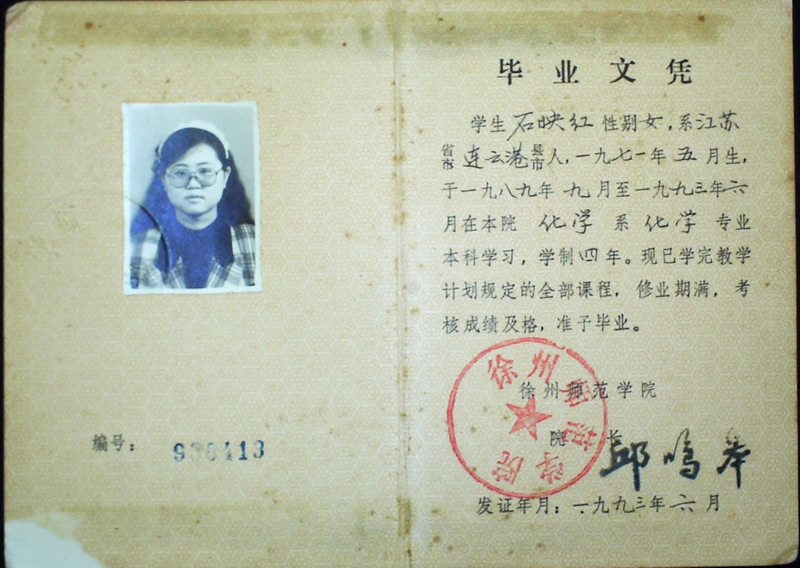 毕业文凭
学生 石映红 性别女，系江苏
省市 连云港 县市 人，一九七一年 五 月生，
于一九八九年 九 月至一九九三年六
月在本院 化学 系 化学 专业
本科学习，学制四年。现已学完教学
计划规定的全部课程，修业期满，考
核成绩及格，准予毕业。
徐州师范学院
徐州师范学院
院长 邱鸣皋
编号： 930413
发证年月：一九九三年 六 月